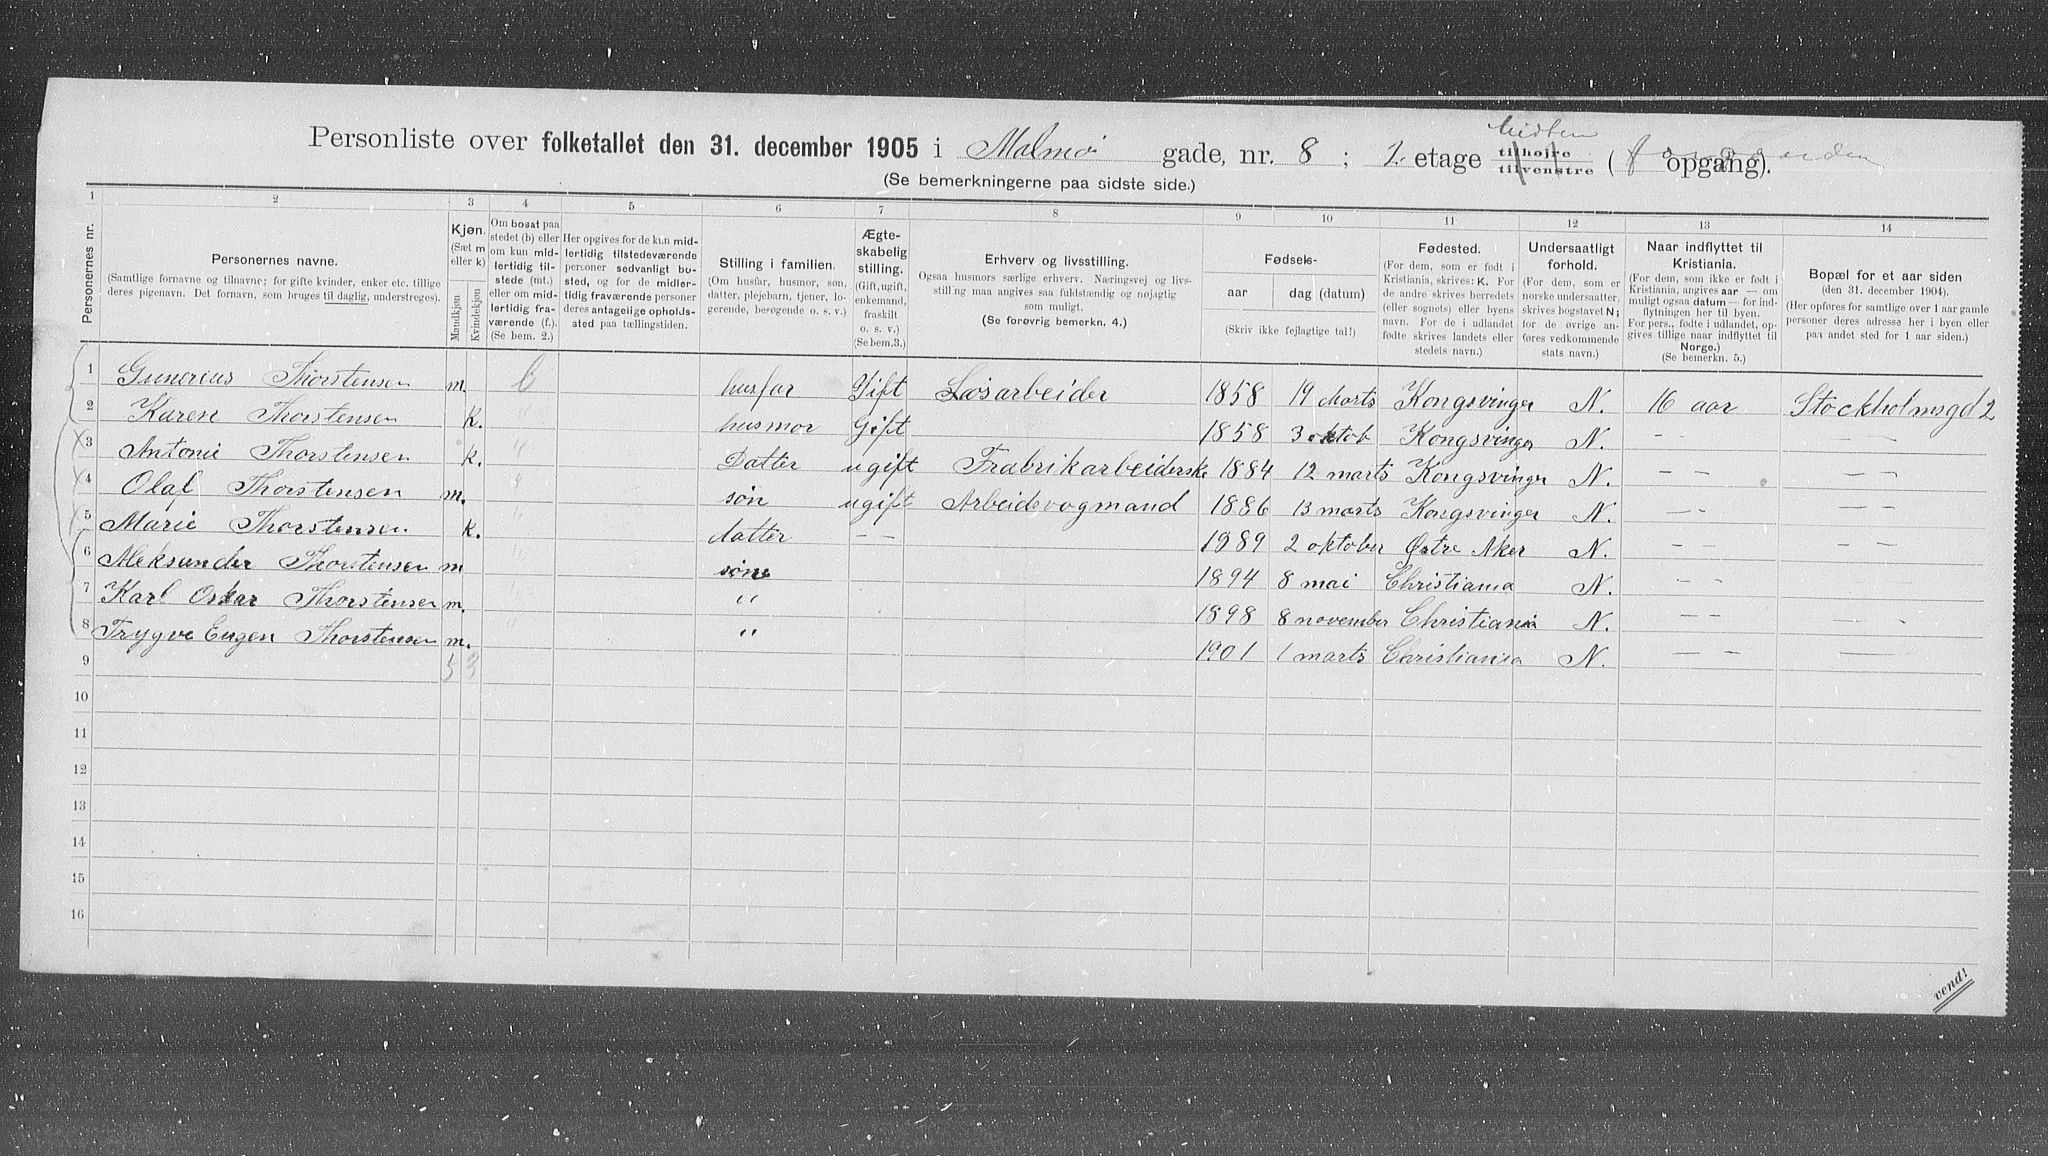 Personliste over folketallet den 31. december 1905 i Malmö gade, nr. 8 ; 1. etage midten tilhøjre tilvenstre ( opgang).
(Se bemerkningerne paa sidste side.)
1 2 3 4 5 6 7 8 9 10 11 12 13 14
Personernes nr.
Personernes navne.
(Samtlige fornavne og tilnavne; for gifte kvinder, enker etc. tillige
deres pigenavn. Det fornavn, som bruges til daglig, understreges).
Kjøn.
(Sæt m
eller k)
Mandkjøn
Kvindekjøn
Om bosat paa
stedet (b) eller
om kun mid-
lertidig til-
stede (mt.)
eller om mid-
lertidig fra-
værende (f.).
(Se bem. 2.)
Her opgives for de kun mid-
lertidig tilstedeværende
personer sedvanligt bo-
sted, og for de midler-
tidig fraværende personer
deres antagelige opholds-
sted paa tællingstiden.
Stilling i familien.
(Om husfar, husmor, søn,
datter, plejebarn, tjener, lo-
gerende, besøgende o. s. v.)
Ægte-
skabelig
stilling.
(Gift, ugift,
enkemand,
fraskilt
o. s. v.)
(Se bem.3.)
Erhverv og livsstilling.
Ogsaa husmors særlige erhverv. Næringsvej og livs-
stilling maa angives saa fuldstændig og nøjagtig
som muligt.
(Se forøvrig bemerkn. 4.)
Fødsels-
aar
dag (datum)
(Skriv ikke fejlagtige tal!)
Fødested.
(For dem, som er født i
Kristiania, skrives: K. For
de andre skrives herredets
(eller sognets) eller byens
navn. For de i udlandet
fødte skrives landets eller
stedets navn.)
Undersaatligt
forhold.
(For dem, som er
norske undersaatter,
skrives bogstavet N;
for de øvrige an-
føres vedkommende
stats navn.)
Naar indflyttet til
Kristiania.
(For dem, som ikke er født i
Kristiania, angives aar — om
muligt ogsaa datum — for ind-
flytningen her til byen.
For pers., fødte i udlandet, op-
gives tillige naar indflyttet til
Norge.)
(Se bemerkn. 5.)
Bopæl for et aar siden
(den 31. december 1904).
(Her opføres for samtlige over 1 aar gamle
personer deres adresse her i byen eller
paa andet sted for 1 aar siden.)
1 Gunerius Thorstensen m. b husfar Gift Løsarbeider 1858 19 Marts Kongsvinger N. 16 aar Stockholmsgd 2
2 Karen Thorstensen k. " husmor Gift 1858 3 oktob Kongsvinger N. — — — —
3 Antonie Thorstensen k. " Datter ugift Frabrikarbeiderske 1884 12 marts Kongsvinger N. — — — —
4 Olaf Thorstensen m. " søn ugift Arbeidsvogmand 1886 13 marts Kongsvinger N. — — — —
5 Marie Thorstensen k. " datter — — 1989 2 oktober Østre Aker N. — — — —
6 Aleksander Thorstensen m " søn 1894 8 mai Christiania N. — — — —
7 Karl Oskar Thorstensen m. " " 1898 8 november Christiania N. — — — —
8 Trygve Eugen Thorstensen m. " " 1901 1 marts Christiania N. — — — —
9 5 3
10
11
12
13
14
15
16
vend!